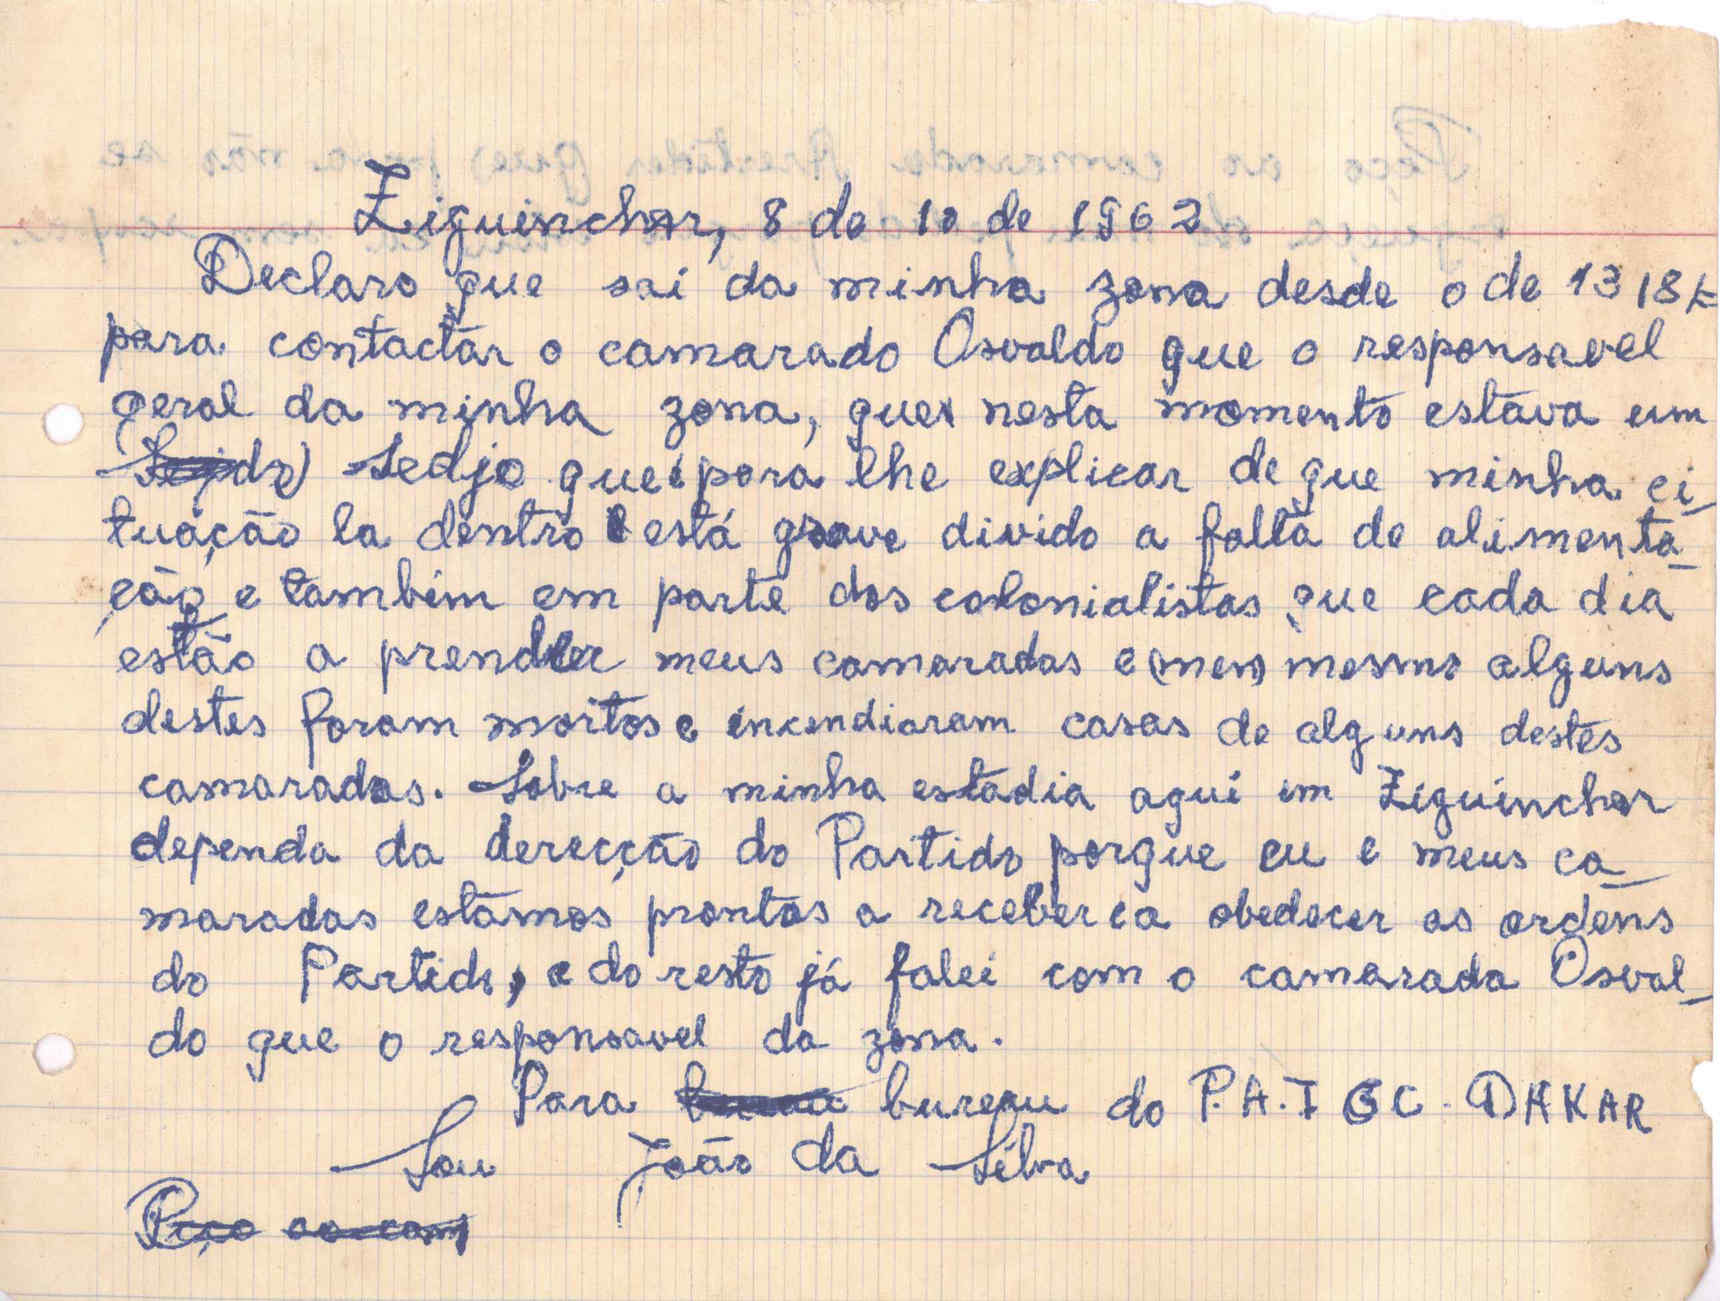 Ziguinchor, 8 de 10 de 1962
Declaro que saí da minha zona desde o de 13 18
para contactar o camarado Osvaldo que o responsavel
geral da minha zona, que nesta momento estava em
Sedjo que para lhe explicar de que minha ci_
tuáção la dentro está grave divido a falta de alimenta_
ção e também em parte dos colonialistas que cada dia
estão a prender meus camaradas e (mem) mesmo alguns
destes foram mortos e incendiaram casas de alguns destes
camaradas. Sobre a minha estadia aqui im Ziguinchor
dependa da derecção do Partido porque eu e meus ca_
maradas estámos prontos a receber e a obedecer as ordens
do Partido, e do resto já falei com o camarada Osval_
do que o responsavel da zona.
Para bureau do P.A.I GC. DAKAR
Sou João da Silva
Peço ao cam